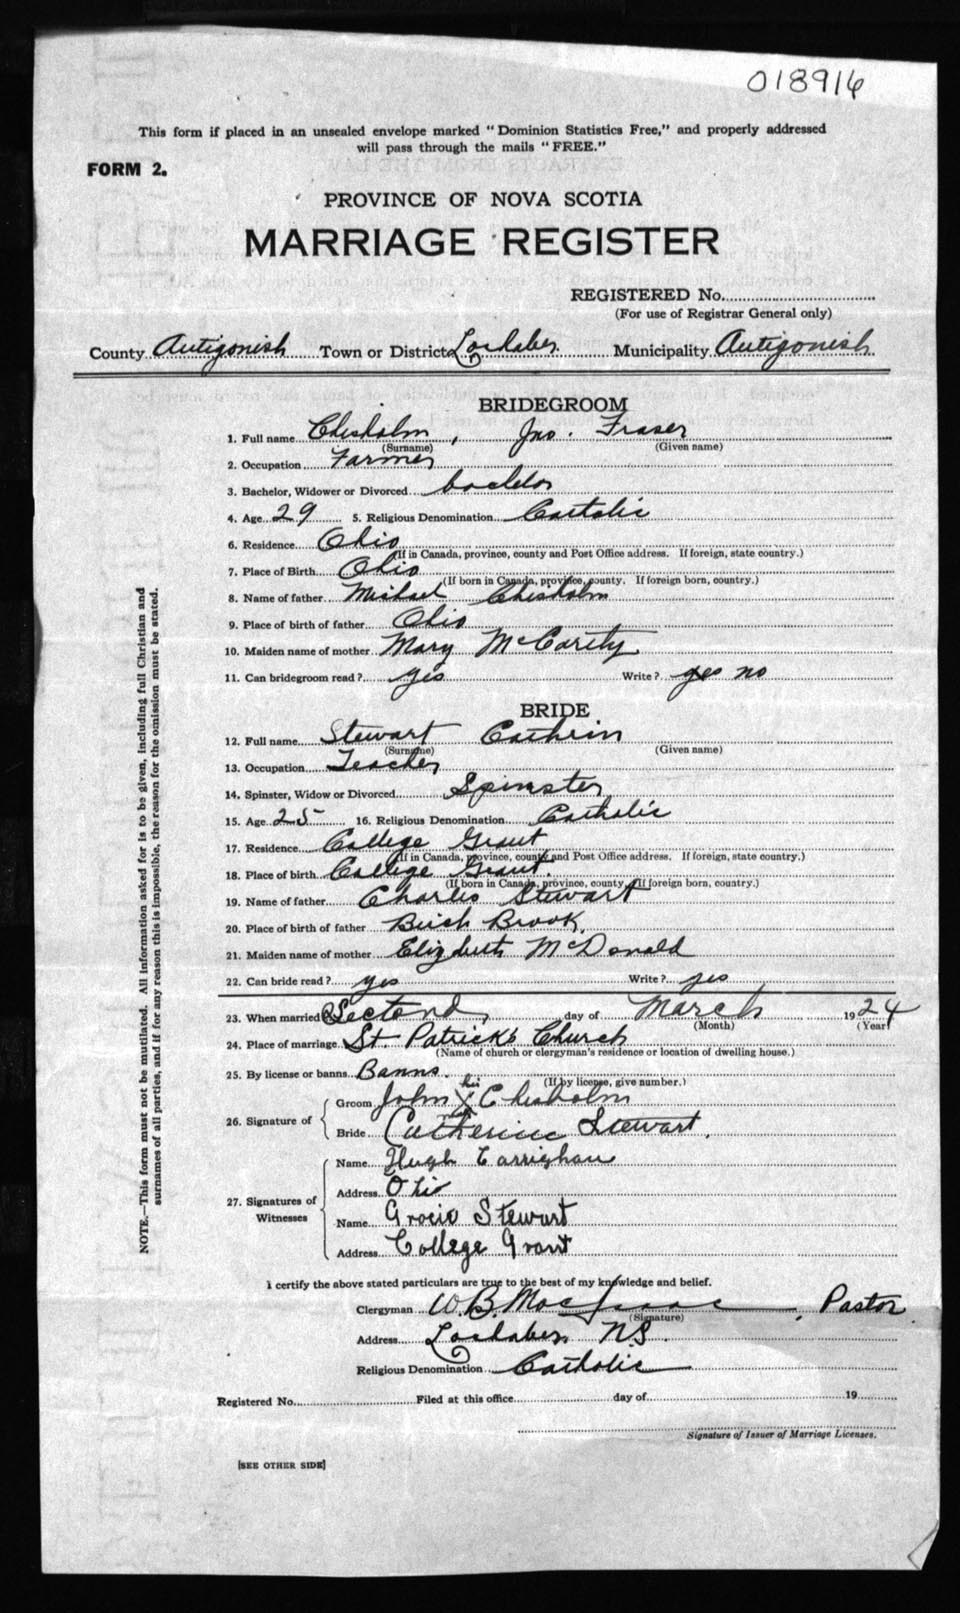 018916
This form if placed in an unsealed envelope marked "Dominion Statistics Free," and properly addressed
will pass through the mails "FREE."
FORM 2.
PROVINCE OF NOVA SCOTIA
MARRIAGE REGISTER
REGISTERED No.
(For use of Registrar General only)
County Antigonish Town or District Lochaber Municipality Antigonish
BRIDEGROOM
1. Full name Chisholm, Jno. Fraser
(Surname) (Given name)
2. Occupation Farmer
3. Bachelor, Widower or Divorced bachelor
4. Age 29 5. Religious Denomination Catholic
6. Residence Ohio
(If in Canada, province, county and Post Office address. If foreign, state country.)
7. Place of Birth Ohio
(If born in Canada, province, county. If foreign born, country.)
8. Name of father Michael Chisholm
9. Place of birth of father Ohio
10. Maiden name of mother Mary McCarity
11. Can bridegroom read? yes Write? yes no
BRIDE
12. Full name Stewart Cathrin
(Surname) (Given name)
13. Occupation Teacher
14. Spinster, Widow or Divorced Spinster
15. Age 25 16. Religious Denomination Catholic
17. Residence College Grant
(If in Canada, province, county and Post Office address. If foreign, state country.)
18. Place of birth College Grant.
(If born in Canada, province, county. If foreign born, country.)
19. Name of father Charles Stewart
20. Place of birth of father Birch Brook.
21. Maiden name of mother Elizabeth McDonald
22. Can bride read? yes Write? yes
23. When married day of March 1924
(Month) (Year)
24. Place of marriage St Patrick's Church
(Name of church or clergyman's residence or location of dwelling house.)
25. By license or banns Banns.
(If by license, give number.)
26. Signature of
Groom John his X Chisholm
Bride Catherine Stewart.
27. Signatures of Witnesses
Name Hugh Carrighan
Address Ohio
Name Gracie Stewart
Address College Grant
I certify the above stated particulars are true to the best of my knowledge and belief.
Clergyman W. B. MacIsaac, Pastor
(Signature)
Address Lochaber NS.
Religious Denomination Catholic
Registered No. Filed at this office day of 19
Signature of Issuer of Marriage Licenses.
[SEE OTHER SIDE]
NOTE.—This form must not be mutilated. All information asked for is to be given, including full Christian and
surnames of all parties, and if for any reason this is impossible, the reason for the omission must be stated.